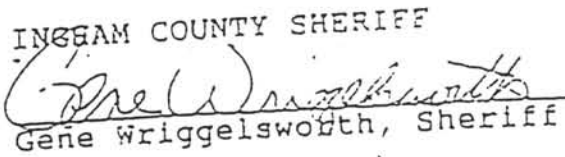 INGHAM COUNTY SHERIFF
Gene Wriggelsworth
Gene Wriggelsworth, Sheriff